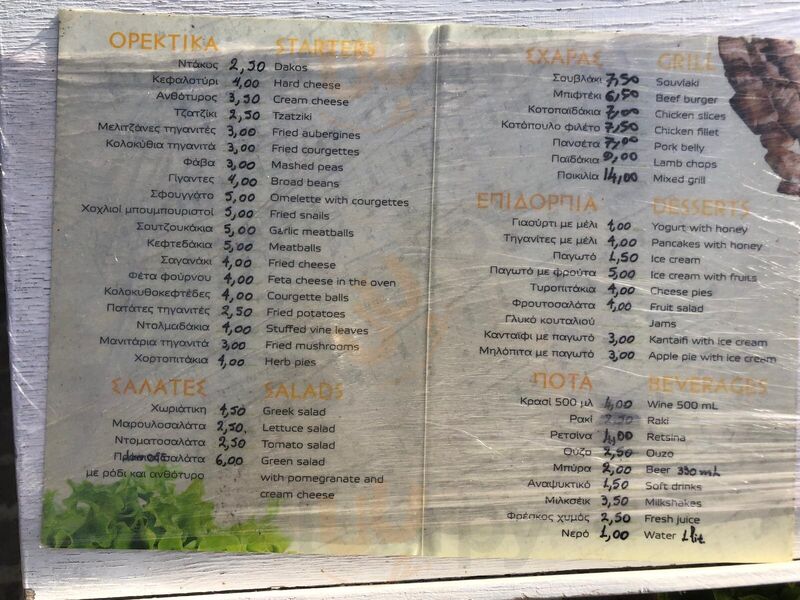 ΟΡΕΚΤΙΚΑ STARTERS
Ντάκος 2,50 Dakos
Κεφαλοτύρι 4,00 Hard cheese
Ανθότυρος 3,50 Cream cheese
Τζατζίκι 2,50 Tzatziki
Μελιτζάνες τηγανιτές 3,00 Fried aubergines
Κολοκύθια τηγανιτά 3,00 Fried courgettes
Φάβα 3,00 Mashed peas
Γίγαντες 4,00 Broad beans
Σφουγγάτο 5,00 Omelette with courgettes
Χοχλιοί μπουμπουριστοί 5,00 Fried snails
Σουτζουκάκια 5,00 Garlic meatballs
Κεφτεδάκια 5,00 Meatballs
Σαγανάκι 4,00 Fried cheese
Φέτα φούρνου 4,00 Feta cheese in the oven
Κολοκυθοκεφτέδες 4,00 Courgette balls
Πατάτες τηγανιτές 2,50 Fried potatoes
Ντολμαδάκια 4,00 Stuffed vine leaves
Μανιτάρια τηγανιτά 3,00 Fried mushrooms
Χορτοπιτάκια 4,00 Herb pies
ΣΑΛΑΤΕΣ SALADS
Χωριάτικη 4,50 Greek salad
Μαρουλοσαλάτα 2,50 Lettuce salad
Ντοματοσαλάτα 2,50 Tomato salad
6,00 Green salad
με ρόδι και ανθότυρο with pomegranate and
cream cheese
ΣΧΑΡΑΣ GRILL
Σουβλάκι 7,50 Souvlaki
Μπιφτέκι 6,50 Beef burger
Κοτοπαϊδάκια 7,00 Chicken slices
Κοτόπουλο φιλέτο 7,50 Chicken fillet
Πανσέτα 7,00 Pork belly
Παϊδάκια 9,00 Lamb chops
Ποικιλία 14,00 Mixed grill
ΕΠΙΔΟΡΠΙΑ DESSERTS
Γιαούρτι με μέλι 4,00 Yogurt with honey
Τηγανίτες με μέλι 4,00 Pancakes with honey
Παγωτό 1,50 Ice cream
Παγωτό με φρούτα 5,00 Ice cream with fruits
Τυροπιτάκια 4,00 Cheese pies
Φρουτοσαλάτα 4,00 Fruit salad
Γλυκό κουταλιού Jams
Κανταΐφι με παγωτό 3,00 Kantaifi with ice cream
Μηλόπιτα με παγωτό 3,00 Apple pie with ice cream
ΠΟΤΑ BEVERAGES
Κρασί 500 μλ 4,00 Wine 500 mL
Ρακί 2,50 Raki
Ρετσίνα 4,00 Retsina
Ούζο 2,50 Ouzo
Μπύρα 2,00 Beer 330 mL
Αναψυκτικό 1,50 Soft drinks
Μιλκσέικ 3,50 Milkshakes
Φρέσκος χυμός 2,50 Fresh juice
Νερό 1,00 Water 1 lit